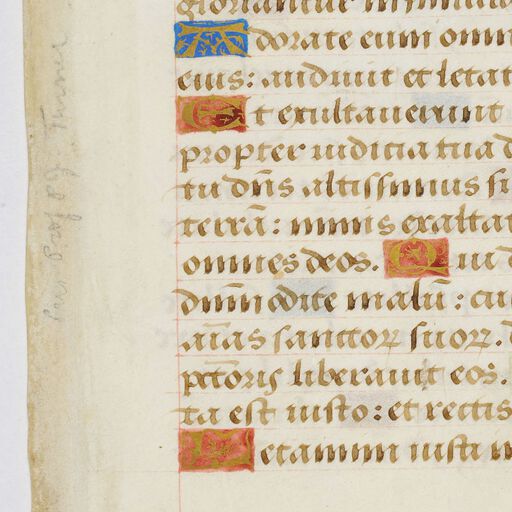 gloriantur in simula
Adorate eum omn
eius: audiuit et letat
Et exultauerunt
propter iudicia tua d
tu dñs altissimus su
terrā: nimis exaltat
omnes deos. Qui d
dnm̄ odite malū: cu
aīas sanctoꝝ suoꝝ.
pctōris liberauit eos.
ta est iusto: et rectis
Letamini iusti